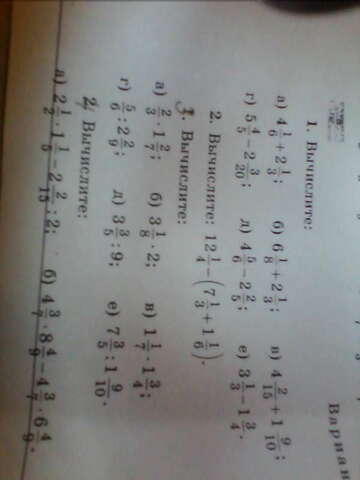 Вариан
1. Вычислите:
а) 4 1/6 + 2 1/3; б) 6 1/8 + 2 1/3; в) 4 2/15 + 1 9/10;
г) 5 4/5 − 2 3/20; д) 4 5/6 − 2 2/5; е) 3 1/3 − 1 3/4.
2. Вычислите: 12 1/4 − (7 1/3 + 1 1/6).
3. Вычислите:
а) 2/3 · 1 2/7; б) 3 1/8 · 2; в) 1 1/7 · 1 3/4;
г) 5/6 : 2 2/9; д) 3 3/5 : 9; е) 7 3/5 : 1 9/10.
Вычислите:
а) 2 1/2 · 1 1/5 − 2 2/15 : 2; б) 4 3/7 · 8 4/9 − 4 3/7 · 6 4/9.